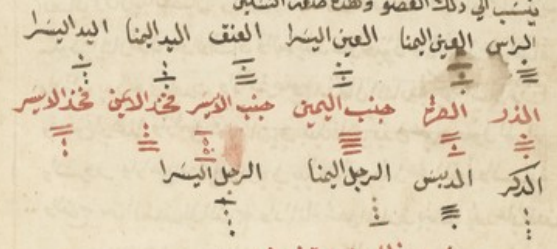 ينسب الي ذلك العضو وهذه صفة
الراس العين اليمنا العين اليسرا العنق اليد اليمنا اليد اليسرا
جنب اليمين جنب الايسر فخذ الايمن فخذ الايسر
الذكر الرجل اليمنا الرجل اليسرا